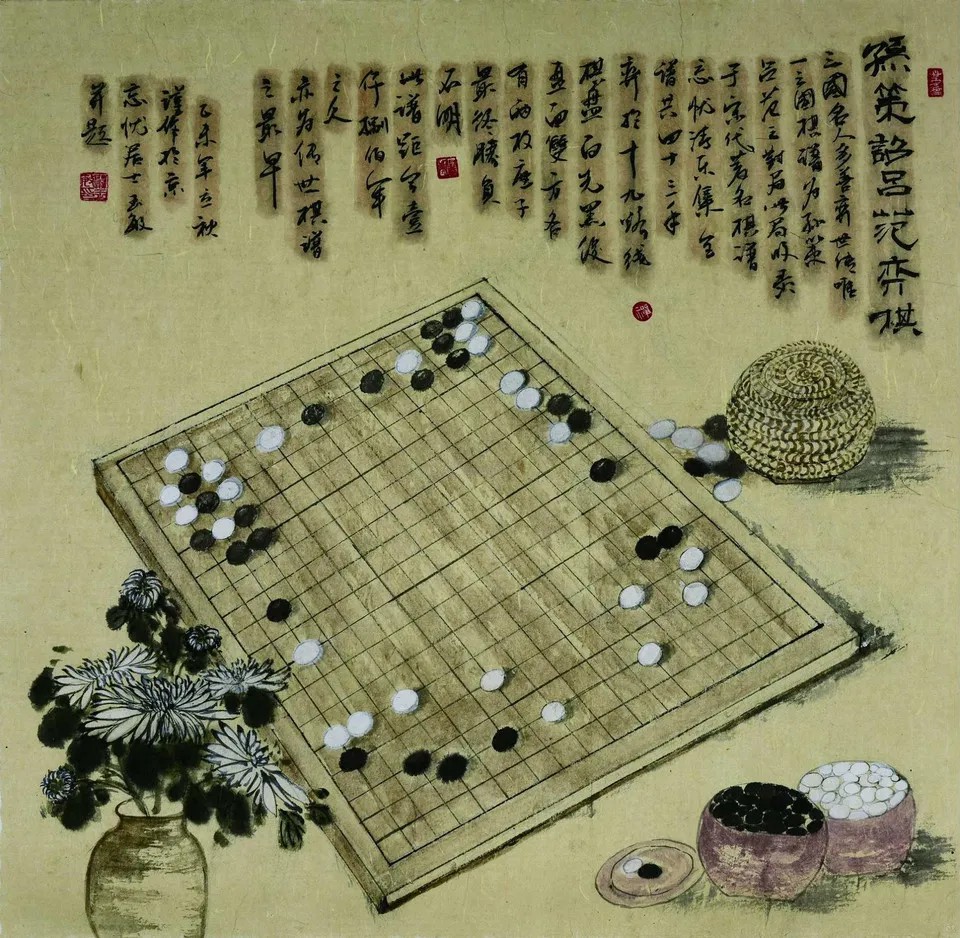 孫策詔吕范弈棋
三國名人多善弈世傳唯
一三國棋譜为孙策
吕范之對局此局收录
于宋代著名棋譜
忘忧清乐集全
譜共四十三手
弈於十九路綫
棋盘白先黑後
盘面雙方各
有两枚座子
最终勝負
不明
此譜距今壹
仟捌伯年
之久
亦为傳世棋譜
之最早
乙未年立秋
謹作於京
忘忧居士
并題